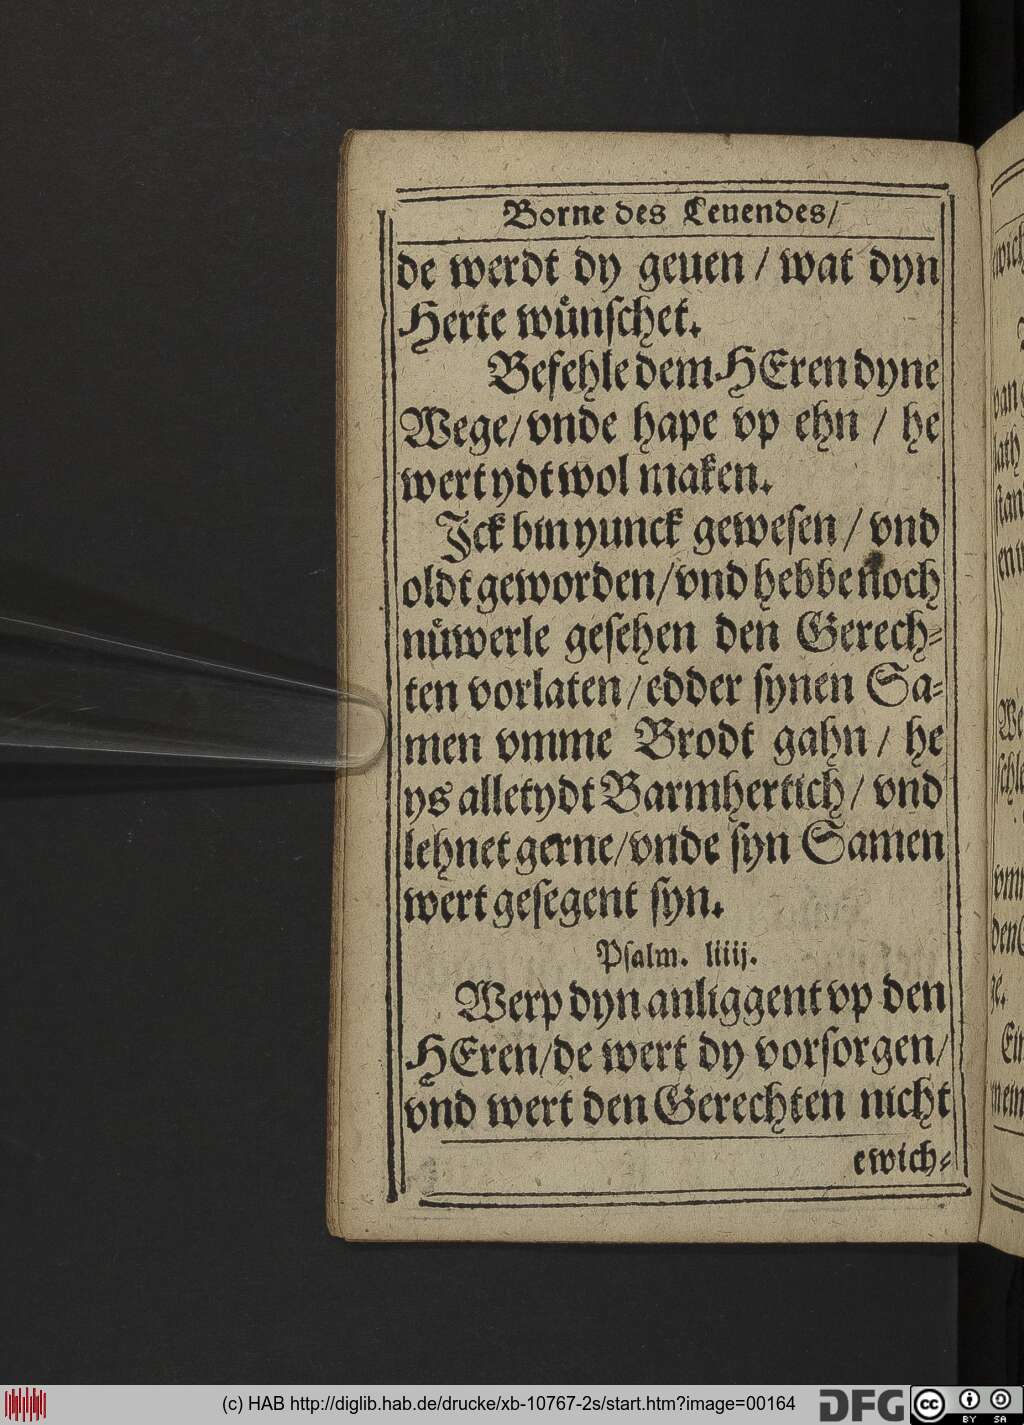 Borne des Leuendes/
de werdt dy geuen / wat dyn
Herte wuͤnſchet.
Befehle dem HEren dyne
Wege/ vnde hape vp ehn / he
wert ydt wol maken.
Jck bin yunck geweſen / vnd
oldt geworden/ vnd hebbe noch
nuͤwerle geſehen den Gerech⸗
ten vorlaten / edder ſynen Sa⸗
men vmme Brodt gahn / he
ys alletydt Barmhertich / vnd
lehnet gerne/ vnde ſyn Samen
wert geſegent ſyn.
Pſalm. liiij.
Werp dyn anliggent vp den
HEren/ de wert dy vorſorgen/
vnd wert den Gerechten nicht
ewich⸗
(c) HAB http://diglib.hab.de/drucke/xb-10767-2s/start.htm?image=00164
DFG
cc
BY SA